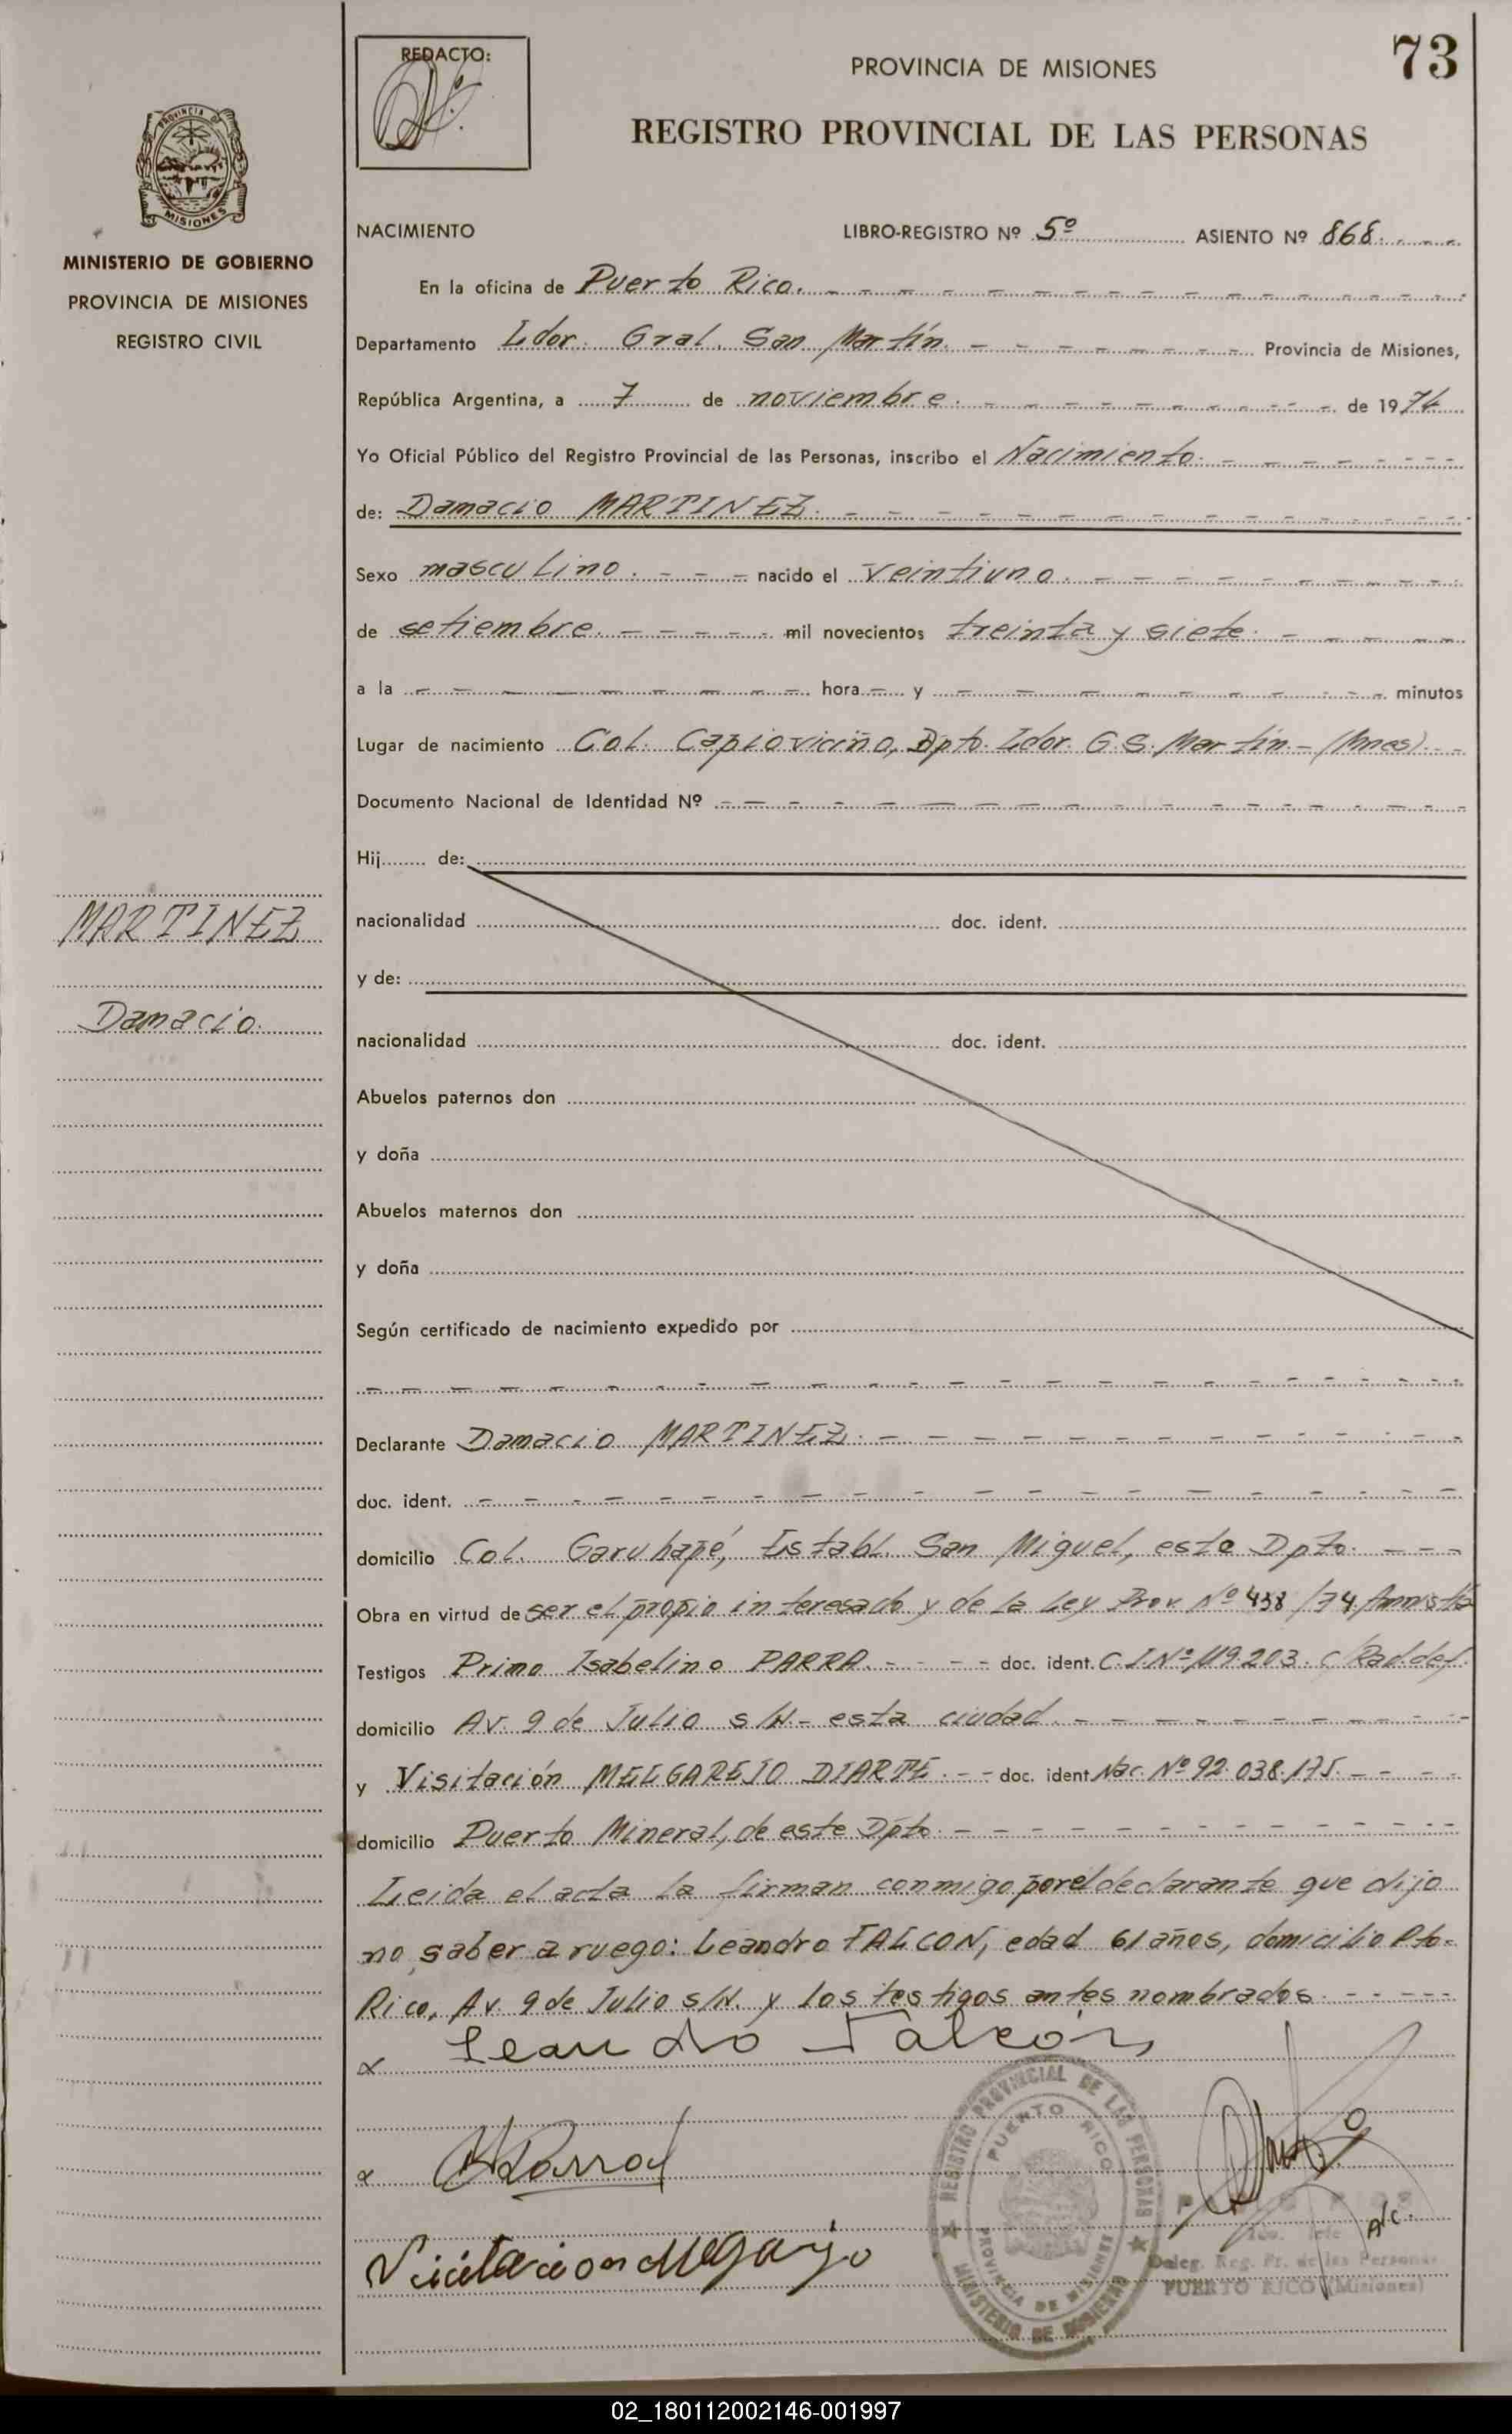 73
REDACTO:
PROVINCIA DE MISIONES
REGISTRO PROVINCIAL DE LAS PERSONAS
PROVINCIA DE
MISIONES
MINISTERIO DE GOBIERNO
PROVINCIA DE MISIONES
REGISTRO CIVIL
MARTINEZ
Damacio
NACIMIENTO LIBRO-REGISTRO Nº 5º ASIENTO Nº 868
En la oficina de Puerto Rico.
Departamento Ldor. Gral. San Martín. Provincia de Misiones,
República Argentina, a 7 de noviembre de 1974
Yo Oficial Público del Registro Provincial de las Personas, inscribo el Nacimiento
de: Damacio MARTINEZ.
Sexo masculino. nacido el veintiuno.
de setiembre. mil novecientos treinta y siete.
a la hora y minutos
Lugar de nacimiento Col. Capioviciño, Dpto. Ldor. G. S. Martín.- (Mnes).
Documento Nacional de Identidad Nº
Hij de:
nacionalidad doc. ident.
y de:
nacionalidad doc. ident.
Abuelos paternos don
y doña
Abuelos maternos don
y doña
Según certificado de nacimiento expedido por
Declarante Damacio MARTINEZ.
doc. ident.
domicilio Col. Garuhapé, Establ. San Miguel, este Dpto.
Obra en virtud de ser el propio interesado y de la Ley Prov. Nº 438/74 Amnistía
Testigos Primo Isabelino PARRA. doc. ident. C.I.Nº 119.203. c/Rad.def.
domicilio Av. 9 de Julio s/N.- esta ciudad.
y Visitación MELGAREJO DIARTE. doc. ident Nac. Nº 92.038.175.
domicilio Puerto Mineral, de este Dpto.
Leida el acta la firman conmigo por el declarante que dijo
no saber a ruego: Leandro FALCON, edad 61 años, domicilio Pto.
Rico, Av. 9 de Julio s/N. y los testigos antes nombrados.
Leandro Falcón
Parra
Vicitacion Melgarejo
REGISTRO PROVINCIAL DE LAS PERSONAS
PUERTO RICO
PROVINCIA DE MISIONES
MINISTERIO DE GOBIERNO
A/C.
Deleg. Reg. Pr. de las Personas
PUERTO RICO (Misiones)
02_180112002146-001997